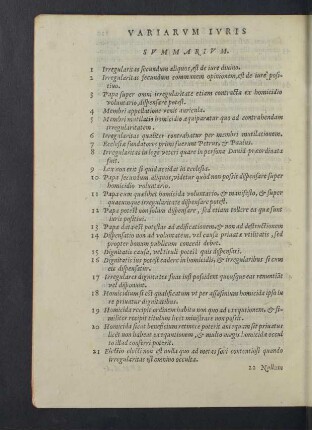 VARIARVM IVRIS
SVMMARIVM.
1 Irregularitas secundum aliquos, est de iure diuino.
2 Irregularitas secundum communem opinionem, est de iure positiuo.
3 Papa super omni irregularitate etiam contracta ex homicidio
voluntario, dispensare potest.
4 Membri appellatione venit auricula.
5 Membri mutilatio homicidio æquiparatur quo ad contrahendam
irregularitatem.
6 Irregularitas qualiter contrahatur per membri mutilationem.
7 Ecclesiæ fundatores primi fuerunt Petrus, & Paulus.
8 Irregularitas in lege veteri quare in persona Dauid præordinata
fuit.
9 Lex non erit si quid erridat in ecclesia.
10 Papa secundum aliquos, videtur quod non possit dispensare super
homicidio voluntario.
11 Papa cum quolibet homicida voluntario, & manifesto, & super
quacunque irregularitate dispensare potest.
12 Papa potest non solum dispensare, sed etiam tollere ea quæ sunt
iuris positiui.
13 Papa data est potestas ad ædificationem, & non ad destructionem
14 Dispensatio non ad voluntatem, vel causa priuatæ vtilitatis, sed
propter bonum publicum concedi debet.
15 Dignitatis causa, vel tituli potest quis dispensari.
16 Dignitatis ius potest cadere in homicidis, & irregularibus si cum
eis dispensatum.
17 Irregulares dignitates suas iusti possident quousque eas renuntiāt
vel disponunt.
18 Homicidium si est qualificatum vt per assassinum homicida ipso iu
re priuatur dignitatibus.
19 Homicida recipit ordinem habitu non quo ad exequutionem, & similiter
recipit titulum licet ministrare non possit.
20 Homicida sicut beneficium retinere poterit antequam sit priuatus
licet non habeat exequutionem, & multo magis homicida occul
to illud conseri poterit.
21 Electio electi non est nulla quo ad merus fori contentiosi quando
irregularitas est omnino occulta.
22 Nullus